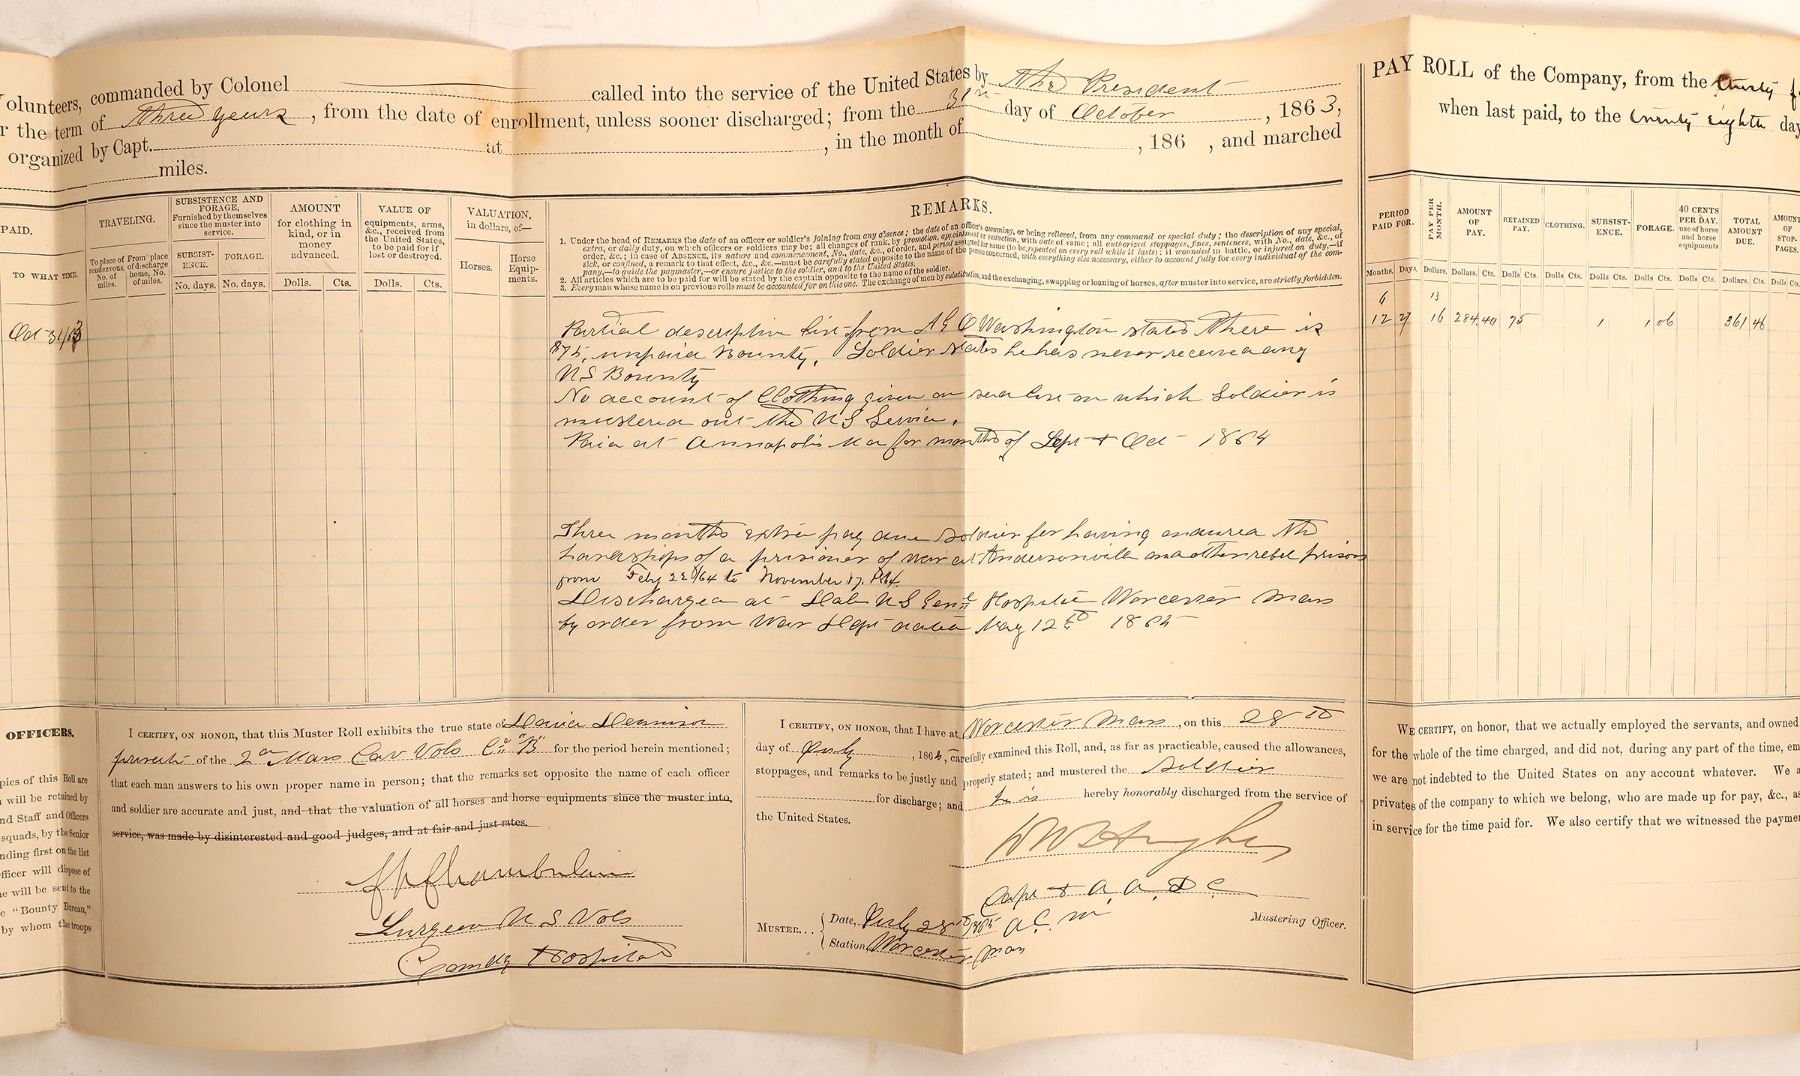 Volunteers, commanded by Colonel called into the service of the United States by The President
r the term of three years, from the date of enrollment, unless sooner discharged; from the 31st day of October, 1863;
organized by Capt. at , in the month of , 186 , and marched
miles.
PAID.
TRAVELING.
SUBSISTENCE AND FORAGE.
Furnished by themselves since the muster into service.
AMOUNT for clothing in kind, or in money advanced.
VALUE OF equipments, arms, &c., received from the United States, to be paid for if lost or destroyed.
VALUATION, in dollars, of—
TO WHAT TIME.
To place of rendezvous, No. of miles.
From place of discharge home, No. of miles.
SUBSIST-ENCE.
FORAGE.
Horses.
Horse Equip-ments.
No. days. No. days. Dolls. Cts. Dolls. Cts.
Oct 31/63
REMARKS.
1. Under the head of REMARKS the date of an officer or soldier's joining from any absence; the date of an officer's assuming, or being relieved, from any command or special duty; the description of any special,
extra, or daily duty, on which officers or soldiers may be; all changes of rank, by promotion, appointment or reduction, with date of same; all authorized stoppages, fines, sentences, with No., date, &c., of
order, &c.; in case of ABSENCE, its nature and commencement, No., date, &c., of order, and period assigned for same (to be repeated on every roll while it lasts); if wounded in battle, or injured on duty,—if
sick, or confined, a remark to that effect, &c., &c.—must be carefully stated opposite to the name of the person concerned, with everything else necessary, either to account fully for every individual of the com-
pany,—to guide the paymaster,—or ensure justice to the soldier, and to the United States.
2. All articles which are to be paid for will be stated by the captain opposite to the name of the soldier.
3. Every man whose name is on previous rolls must be accounted for on this one. The exchange of men by substitution, and the exchanging, swapping or loaning of horses, after muster into service, are strictly forbidden.
Partial descriptive list from A G O Washington states there is
$75, unpaid Bounty. Soldier states he has never received any
US Bounty
No account of Clothing given on list on which Soldier is
mustered out the US Service.
Paid at Annapolis Md for months of Sept & Oct 1864
Three months extra pay due Soldier for having endured the
hardships of a prisoner of war at Andersonville and other rebel prisons
from Feby 22/64 to November 17, /64
Discharged at Dale US Genl Hospital Worcester Mass
by order from War Dept dated May 12th 1865
OFFICERS.
pies of this Roll are
will be retained by
nd Staff and Officers
squads, by the Senior
nding first on the list
fficer will dispose of
ne will be sent to the
e "Bounty Bureau,"
by whom the troops
I CERTIFY, ON HONOR, that this Muster Roll exhibits the true state of David Dennison
private of the 2nd Mass Cav Vols Co "B" for the period herein mentioned;
that each man answers to his own proper name in person; that the remarks set opposite the name of each officer
and soldier are accurate and just, and that the valuation of all horses and horse equipments since the muster into,
service, was made by disinterested and good judges, and at fair and just rates.
Chamberlain
Surgeon U S Vols
Comdg Hospital
I CERTIFY, ON HONOR, that I have at Worcester Mass, on this 28th
day of July, 1865, carefully examined this Roll, and, as far as practicable, caused the allowances,
stoppages, and remarks to be justly and properly stated; and mustered the Soldier
for discharge; and he is hereby honorably discharged from the service of
the United States.
Hughes
Capt & A. A. D. C.
A. C. M
Mustering Officer.
MUSTER... Date, July 28th 1865
Station, Worcester Mass
PAY ROLL of the Company, from the thirty f
when last paid, to the twenty eighth day
PERIOD PAID FOR.
PAY PER MONTH.
AMOUNT OF PAY.
RETAINED PAY.
CLOTHING.
SUBSIST-ENCE.
FORAGE.
40 CENTS PER DAY, use of horse and horse equipments
TOTAL AMOUNT DUE.
AMOUNT OF STOP-PAGES.
Months. Days. Dollars. Dollars. Cts. Dolls. Cts. Dolls. Cts. Dolls. Cts. Dolls. Cts. Dolls. Cts. Dollars. Cts. Dolls.
6 13
12 27 16 284.40 75 1 1 06 361 46
WE CERTIFY, on honor, that we actually employed the servants, and owned
for the whole of the time charged, and did not, during any part of the time, em
we are not indebted to the United States on any account whatever. We a
privates of the company to which we belong, who are made up for pay, &c., as
in service for the time paid for. We also certify that we witnessed the payme